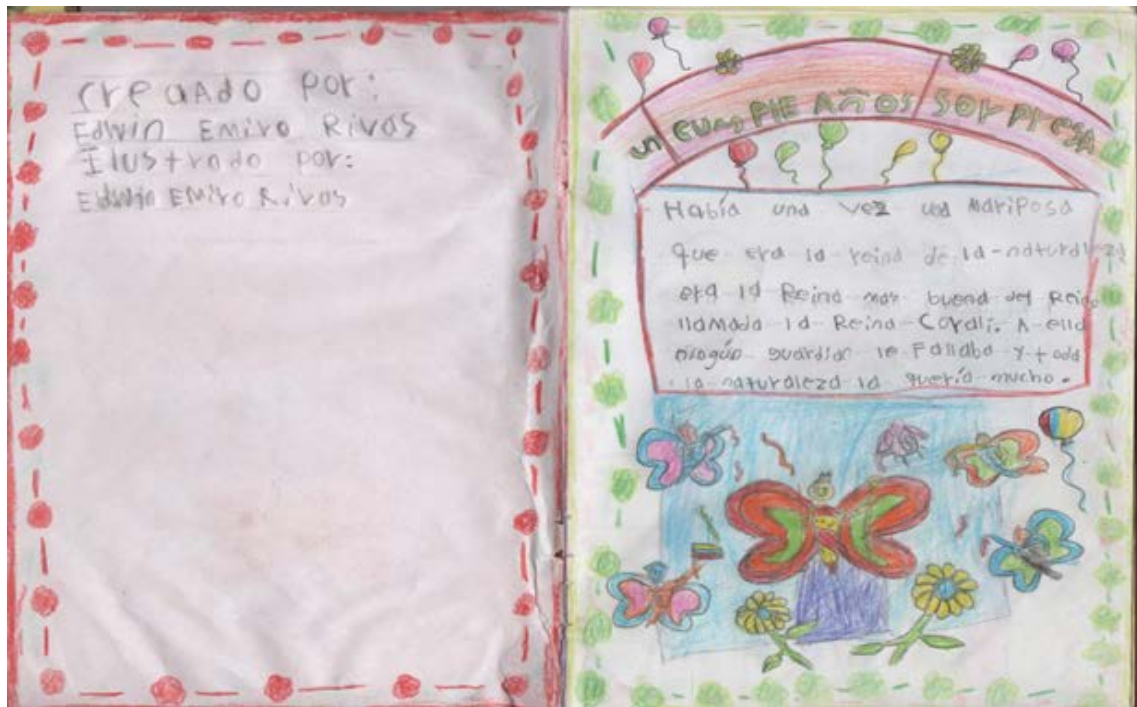 CreaAdo Por:
Edwin Emiro Rivas
Ilustrado por:
Edwin Emiro Rivas
CumPIE AñOS SorPresa
Había una vez una MariPosa
que era la reina de la-naturaleza
era la Reina mas buena del Reino
llaMada la-Reina-Corali. A ella
ningún guardian le Fallaba y toda
la-naturaleza la quería mucho.